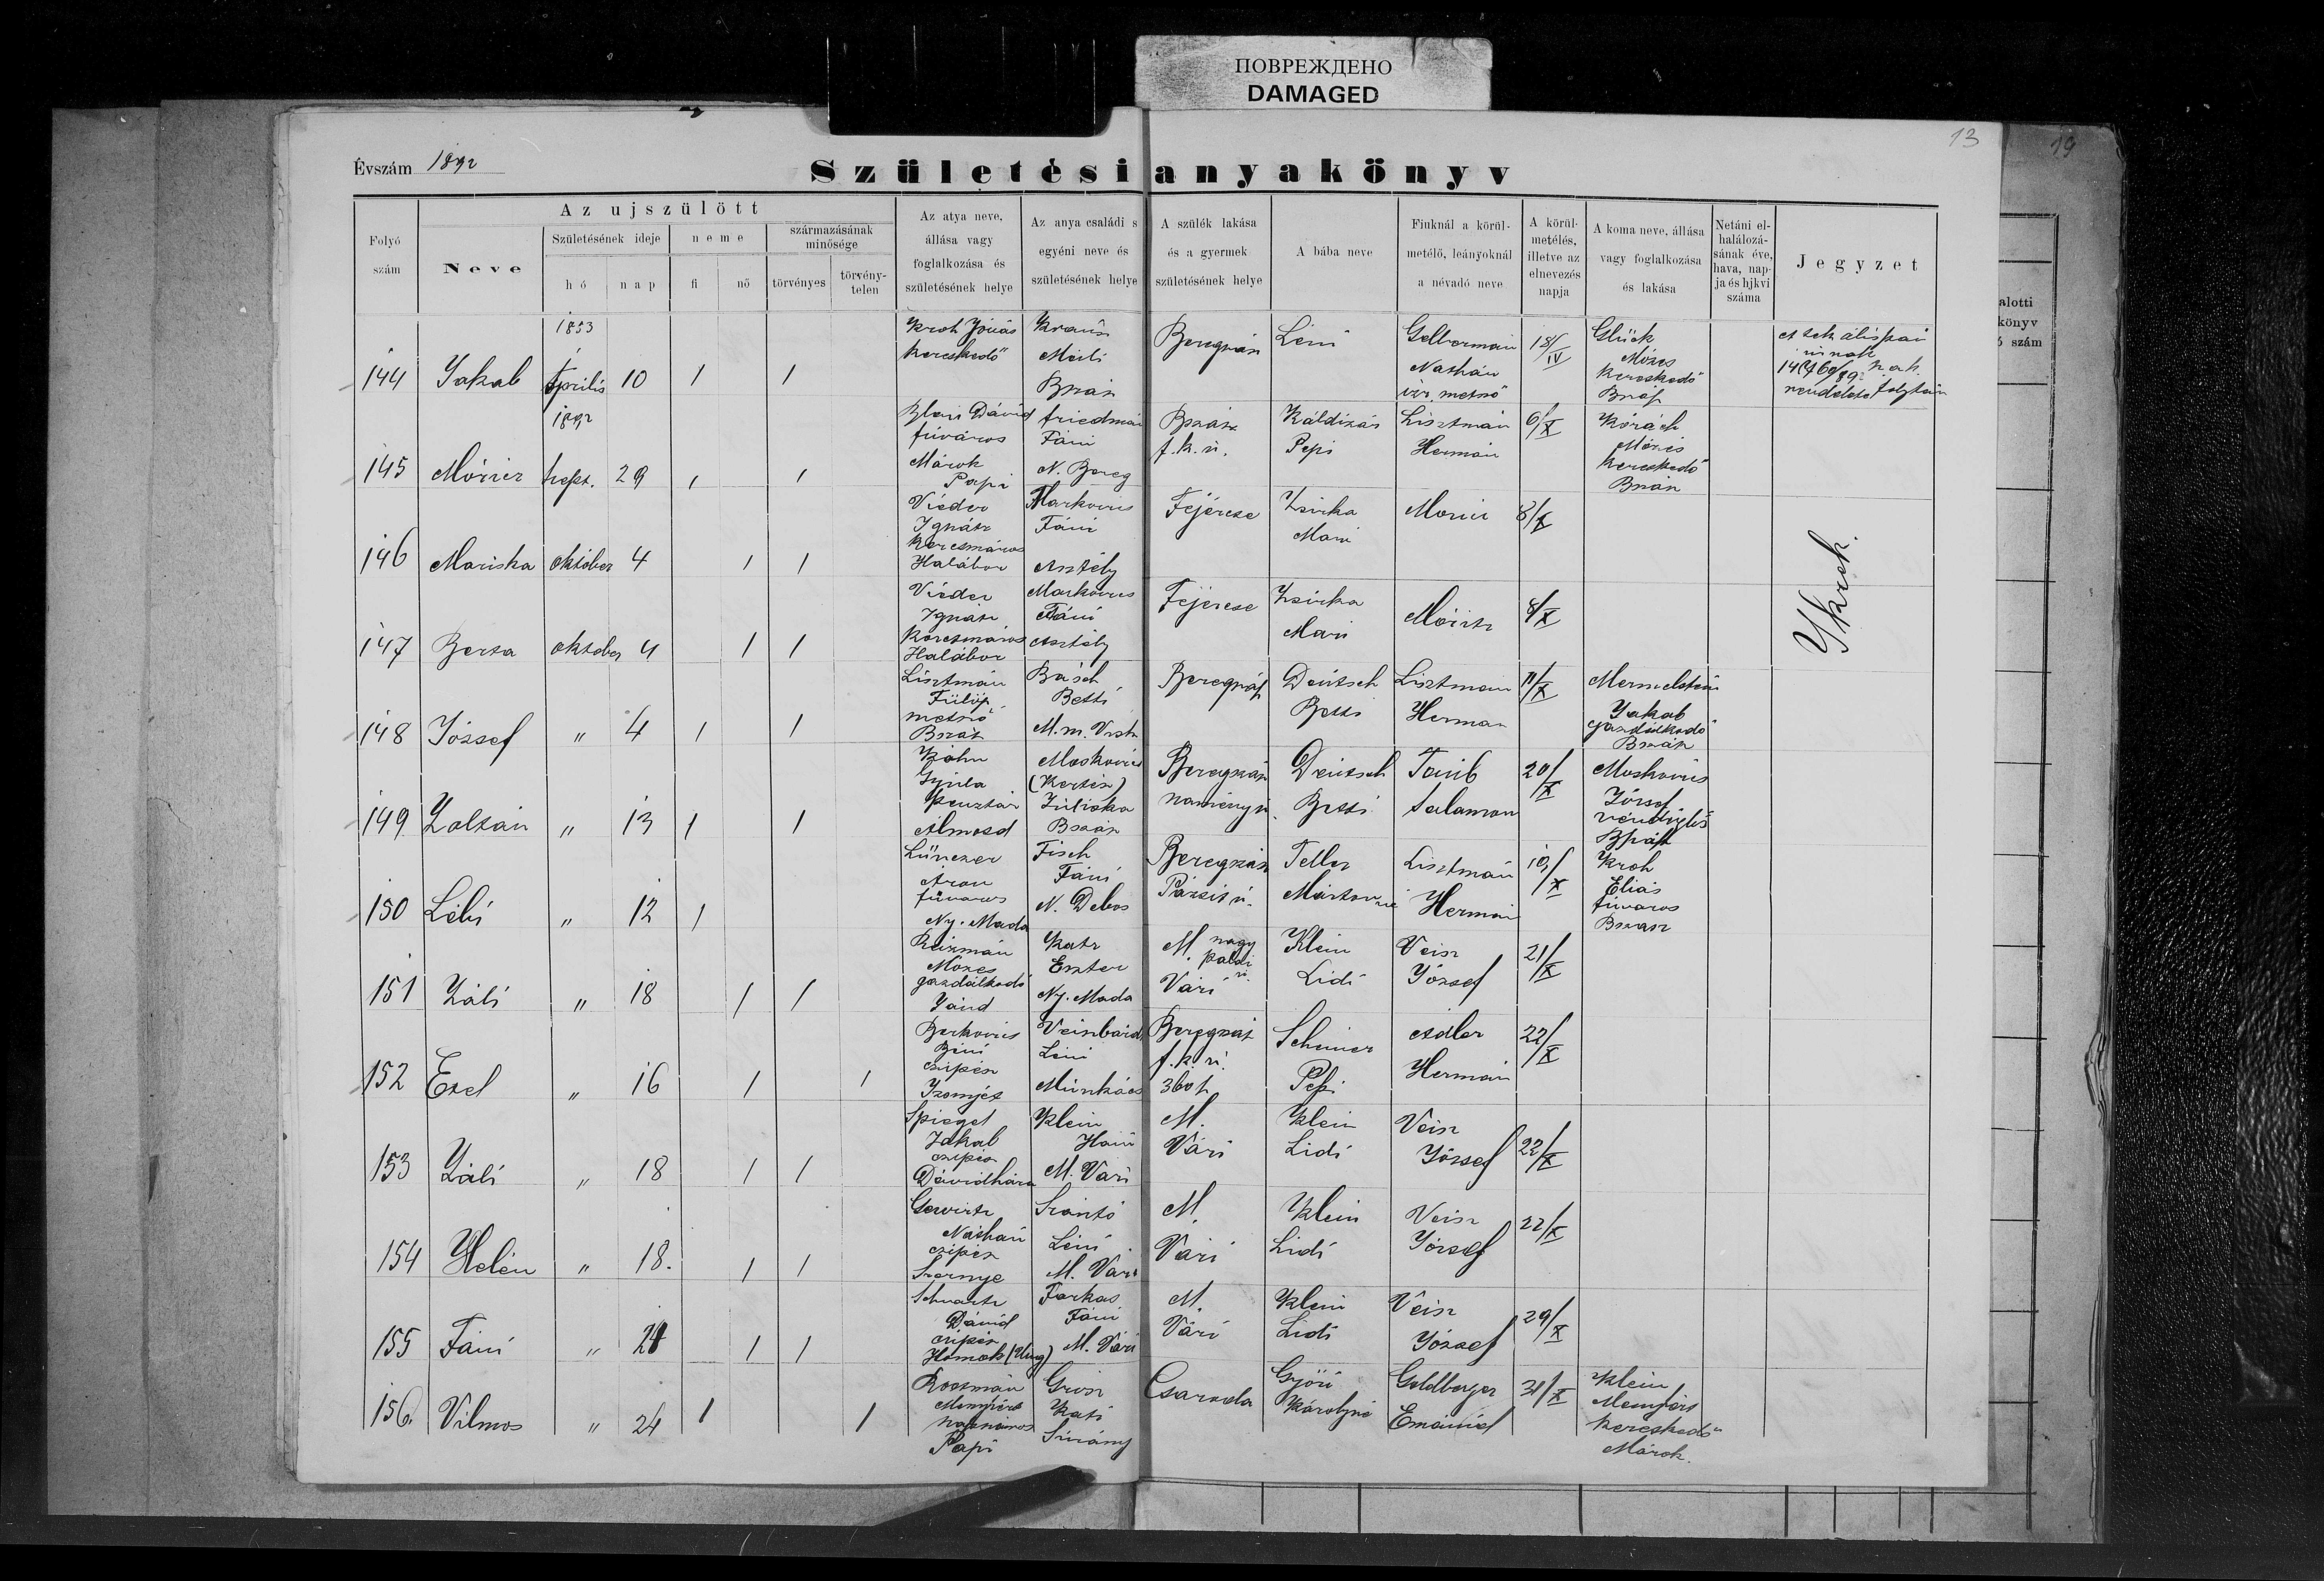 ПОВРЕЖДЕНО
DAMAGED
13
19
Évszám 1892
Születési anyakönyv
Folyó szám
Az ujszülött
Neve
Születésének ideje
hó
nap
neme
fi
nő
származásának minősége
törvényes
törvény-telen
Az atya neve, állása vagy foglalkozása és születésének helye
Az anya családi s egyéni neve és születésének helye
A szülék lakása és a gyermek születésének helye
A bába neve
Fiuknál a körül-metélő, leányoknál a névadó neve
A körül-metélés, illetve az elnevezés napja
A koma neve, állása vagy foglalkozása és lakása
Netáni el-halálozá-sának éve, hava, nap-ja és hjkvi száma
Jegyzet
alotti
könyv
ó szám
144 Jakab 1853 Április 10 1 1 Kroh Jónás kereskedő Kraus Máli Bszász Beregszász Léni Gelberman Náthán izr. metsző 18/IV Glück Mózes kereskedő Bszász
rendelete folytán
145 Móricz 1892 Szept. 29 1 1 Dávid fuvaros Márok Papi Friedman Fáni N. Bereg Bszász f.k.u. Káldizár Pepi Lisztmán Hermán 6/X Móricz kereskedő Bszász
146 Mariska október 4 1 1 Vieder Ignátz korcsmáros Halábor Markovics Fáni Asztély Fejércse Zsirka Mari Moricz 8/X
147 Berta oktober 4 1 1 Vieder Ignátz Korcsmáros Halábor Markovics Fáni Asztély Fejércse Zsirka Mari Móritz 8/X
148 József " 4 1 1 Lisztmán Fülöp metsző Bszász Básch Betti Beregszász Deutsch Betti Lisztman Herman 11/X Mermelstein Jakab gazdálkodó Bszász
149 Zoltán " 13 1 1 Gyula Álmosd Moskovics (Kertész) Juliska Bszász Beregszász naményi u. Deutsch Betti Taub Salamon 20/X Moskovics József vendéglős Bszász
150 Lébi " 12 1 Áron fuvaros Ny. Mada Fisch Fáni Beregszász Teller Mártonné Lisztmán Hermán 19/X Kroh Éliás fuvaros Bszász
151 Záli " 18 1 1 Reizmán Mózes gazdálkodó Jánd Katz Eszter Ny. Mada M. Vári nagy Klein Lidi Veisz József 21/X
152 Eszel " 16 1 1 Berkovics Beni czipész Léni Munkács Beregszász f.k.u. Pepi Adler Hermán 22/X
153 Záli " 18 1 1 Spiegel Jakab czipész Dávidháza Klein Hani M. Vári M. Vári Klein Lidi Veisz József 22/X
154 Helén " 18. 1 1 Náthán czipész Szernye Szántó Léni M. Vári M. Vári Klein Lidi Veisz József 22/X
155 Fáni " 21 1 1 Schvartz Dávid czipész Homok (Ung) Farkas Fáni M. Vári M. Vári Klein Lidi Veisz József 29/X
156. Vilmos " 24 1 1 Rosmán Papi Kati Csaroda Győri Károlyné Goldberger Emánuel 31/X Klein kereskedő Márok.